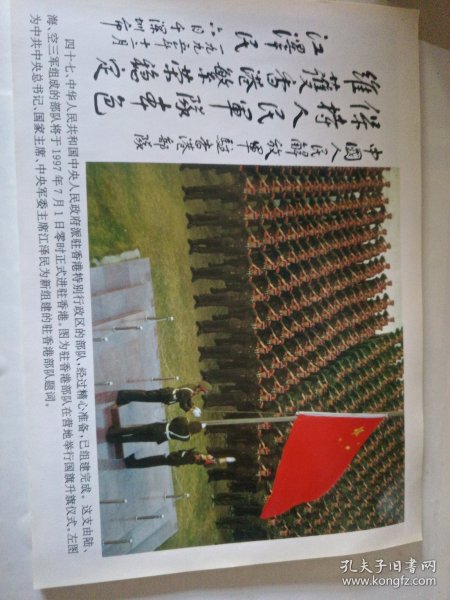 中國人民解放軍駐香港部隊
保持人民軍隊本色
維護香港繁榮穩定
江澤民
一九九五年十二月
六日于深圳市
四十七、中华人民共和国中央人民政府派驻香港特别行政区的部队,经过精心准备,已组建完成。这支由陆、
海、空三军组成的部队将于1997年7月1日零时正式进驻香港。图为驻香港部队在营地举行国旗升旗仪式。左图
为中共中央总书记、国家主席、中央军委主席江泽民为新组建的驻香港部队题词。
孔夫子旧书网
www.kongfz.com